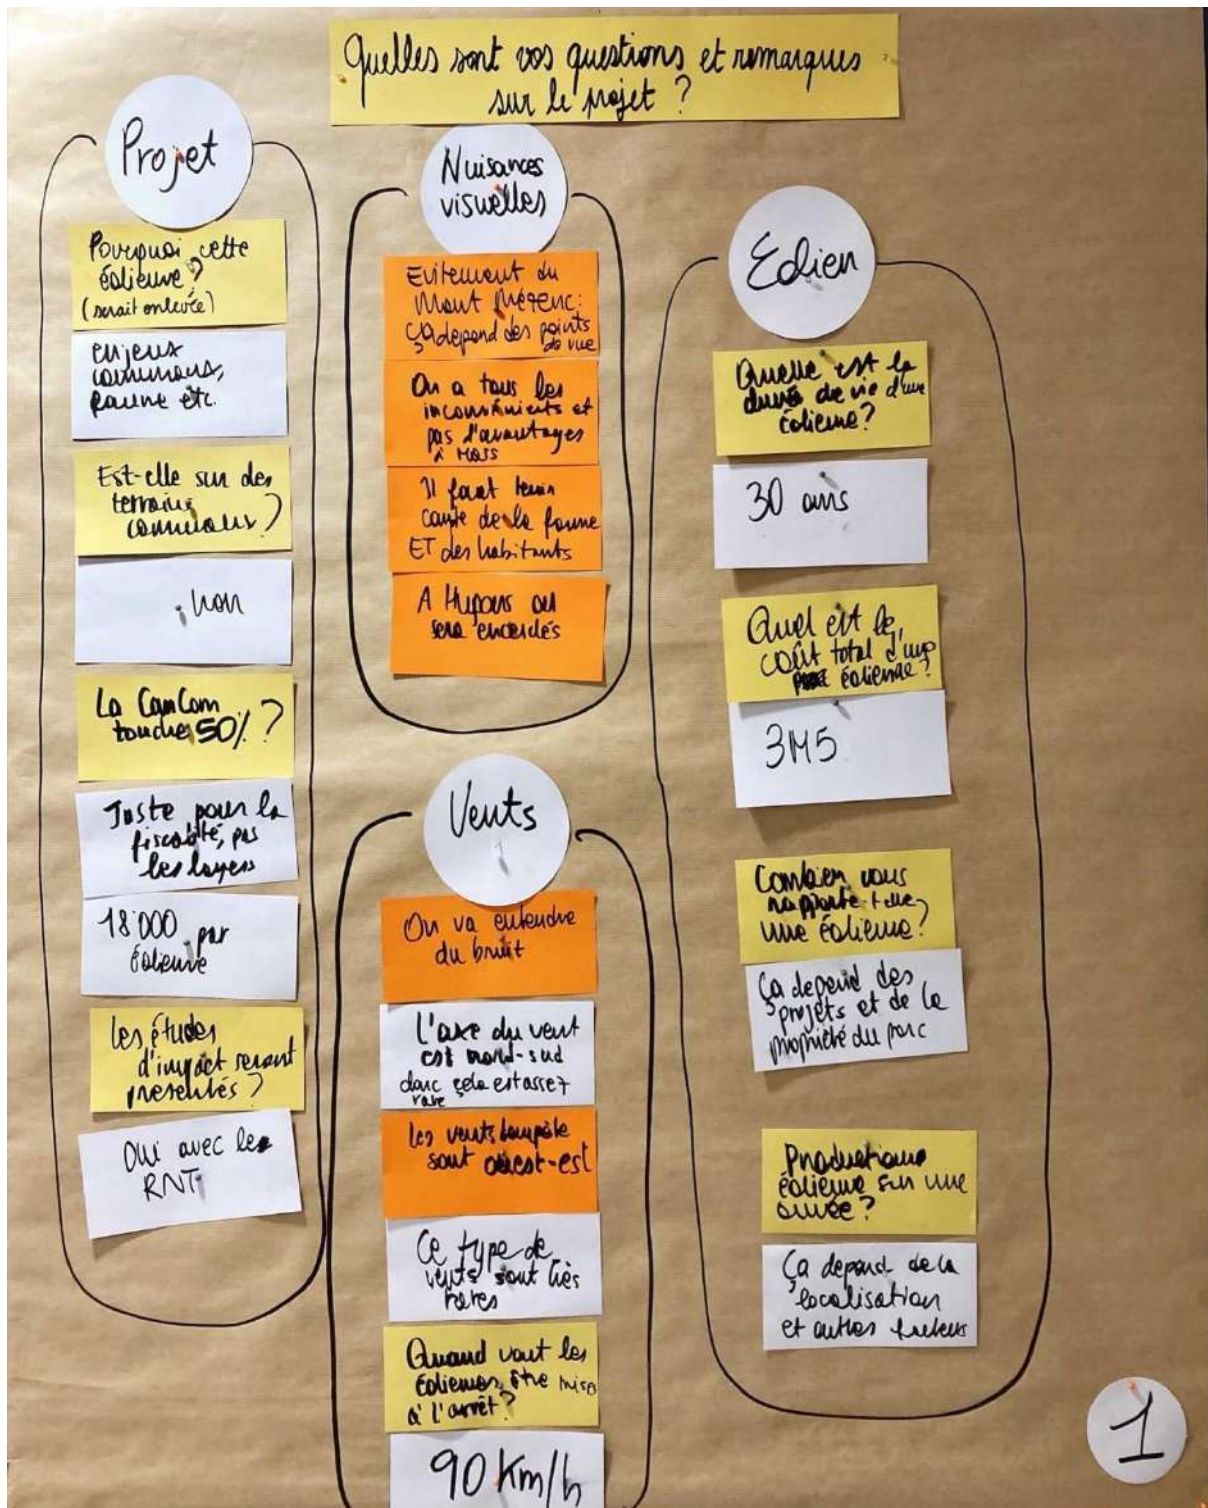 Quelles sont vos questions et remarques
sur le projet ?
Projet
Pourquoi cette
éolienne ?
(serait enlevée)
enjeux
communaux,
faune etc.
Est-elle sur des
terrains
communaux ?
non
La ComCom
touche 50% ?
Juste pour la
fiscalité, pas
les loyers
18'000 par
éolienne
Les études
d'impact seront
présentés ?
Oui avec les
RNT
Nuisances
visuelles
Evitement du
Mont Mézenc:
ça dépend des points
de vue
On a tous les
inconvénients et
pas d'avantages
à Mars
Il faut tenir
compte de la faune
ET des habitants
A on
sera encerclés
Vents
On va entendre
du bruit
L'axe du vent
est nord-sud
donc cela est assez
rare
Les vents tempête
sont ouest-est
Ce type de
vents sont très
rares
Quand vont les
éoliennes être mise
à l'arrêt ?
90 Km/h
Eolien
Quelle est la
durée de vie d'une
éolienne ?
30 ans
Quel est le
coût total d'une
éolienne ?
3M5
Combien vous
rapporte-t-elle
une éolienne ?
Ça dépend des
projets et de la
propriété du parc
Productions
éolienne sur une
année ?
Ça dépend de la
localisation
et autres
1